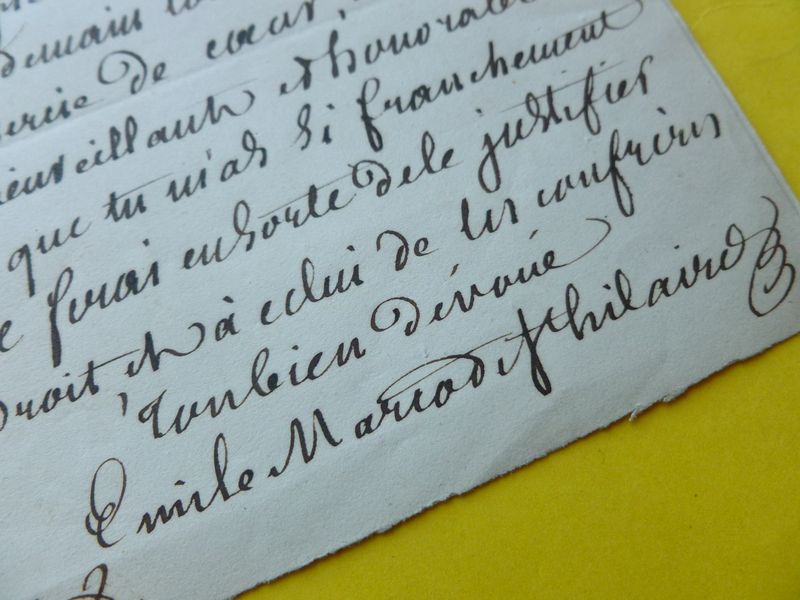 demain
de cœur,
bienveillant et honorable
que tu m'as si franchement
ferai ensorte de le justifier
droit, et à celui de tes confrères
Ton bien dévoué
Emile Marco de St hilaire